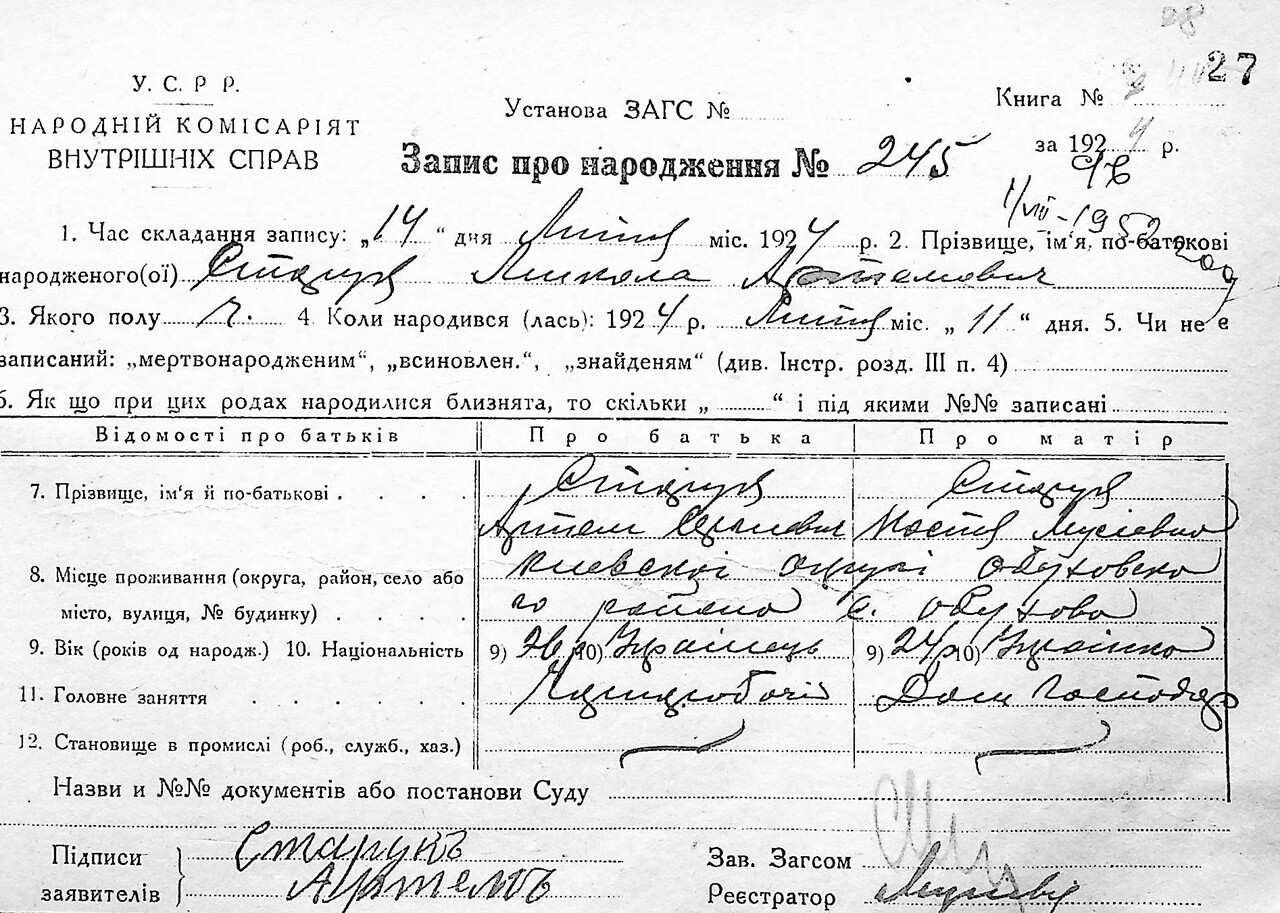 27
У. С. Р Р.
НАРОДНІЙ КОМІСАРІЯТ
ВНУТРІШНІХ СПРАВ
Установа ЗАГС №
Книга №
за 1924 р.
Запис про народження № 245
1/VIII-1952
1. Час складання запису: „14“ дня Липня міс. 1924 р. 2. Прізвище, ім'я, по-батькові
народженого(ої) Старук Микола Артемович
3. Якого полу ч. 4. Коли народився (лась): 1924 р. Липня міс. „11“ дня. 5. Чи не є
записаний: „мертвонародженим“, „всиновлен.“, „знайденям“ (див. Інстр. розд. III п. 4)
6. Як що при цих родах народилися близнята, то скільки „ “ і під якими №№ записані
Відомості про батьків Про батька Про матір
7. Прізвище, ім'я й по-батькові . . . . Старук Старук
Артем Мусіевна
8. Місце проживання (округа, район, село або Киевскоі округі Обуховско
місто, вулиця, № будинку) . . . . го района с. Обухова
9. Вік (років од народж.) 10. Національність 9) 26 10) Украінець 9) 24 р 10) Украінка
11. Головне заняття . . . . . . Дом Господар
12. Становище в промислі (роб., служб., хаз.)
Назви и №№ документів або постанови Суду
Підписи Старукъ Зав. Загсом
заявителів Артемъ Реєстратор